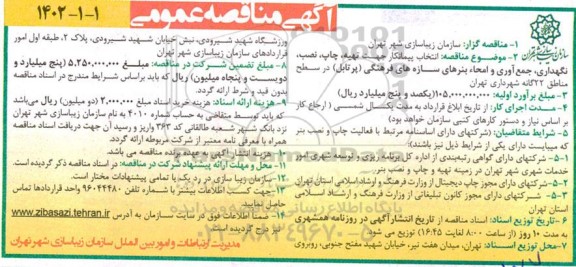 آگهی مناقصه عمومی
۱-۱-۱۴۰۲
سازمان زیباسازی شهر تهران
۱- مناقصه گزار: سازمان زیباسازی شهر تهران
۲- موضوع مناقصه: انتخاب پیمانکار جهت تهیه، چاپ، نصب،
نگهداری، جمع آوری و امحاء بنرهای سازه های فرهنگی (پرتابل) در سطح
مناطق ۲۲گانه شهرداری تهران
۳- مبلغ برآورد اولیه: ۱۰۵,۰۰۰,۰۰۰,۰۰۰(یکصد و پنج میلیارد ریال)
۴- مدت اجرای کار: از تاریخ ابلاغ قرارداد به مدت یکسال شمسی ( ارجاع کار
بر اساس نیاز و دستور کارهای کتبی سازمان خواهد بود)
۵- شرایط متقاضیان: (شرکتهای دارای اساسنامه مرتبط با فعالیت چاپ و نصب بنر
که میبایست دارای یکی از شرایط ذیل نیز باشند):
۱-۵- شرکتهای دارای گواهی رتبه‌بندی از اداره کل برنامه ریزی و توسعه شهری امور
خدمات شهری شهر تهران در زمینه تهیه و چاپ و نصب بنر
۲-۵- شرکتهای دارای مجوز چاپ دیجیتال از وزارت فرهنگ و ارشاد اسلامی استان تهران
۳-۵- شرکتهای دارای مجوز کانون تبلیغاتی از وزارت فرهنگ و ارشاد اسلامی
استان تهران
۶- تاریخ توزیع اسناد: اسناد مناقصه از تاریخ انتشار آگهی در روزنامه همشهری
به مدت ۱۰ روز (از ساعت ۸:۰۰ لغایت ۱۶:۴۵) توزیع می شود
۷- محل توزیع اسناد: تهران، میدان هفت تیر، خیابان شهید مفتح جنوبی، روبروی
ورزشگاه شهید شیرودی، نبش خیابان شهید شیرودی، پلاک ۲، طبقه اول امور
قراردادهای سازمان زیباسازی شهر تهران
۸- مبلغ تضمین شرکت در مناقصه: مبلغ ۵,۲۵۰,۰۰۰,۰۰۰ (پنج میلیارد و
دویست و پنجاه میلیون) ریال که باید براساس شرایط مندرج در اسناد مناقصه
بدون قید و شرط ارائه گردد.
۹- هزینه ارائه اسناد: هزینه خرید اسناد مبلغ ۲,۰۰۰,۰۰۰ (دو میلیون) ریال می‌باشد
که باید توسط متقاضی به حساب شماره ۴۰۱۰ به نام سازمان زیباسازی شهر تهران
نزد بانک شهر شعبه طالقانی کد ۳۶۳ واریز و رسید آن جهت دریافت اسناد مناقصه
همراه با معرفی نامه معتبر از شرکت مربوطه ارائه گردد.
۱۰- هزینه انتشار آگهی به عهده برنده مناقصه می باشد.
۱۱- محل و مهلت ارائه پیشنهاد شرکت در مناقصه: در اسناد مناقصه ذکر گردیده است.
۱۲- سازمان زیبا سازی در رد یک یا تمامی پیشنهادات مختار است.
۱۳- جهت کسب اطلاعات بیشتر با شماره تلفن ۹۶۰۴۴۴۸۰ واحد قراردادها تماس
حاصل نمایید
۱۴- ضمنا اطلاعات فوق در سایت سازمان به آدرس www.zibasazi.tehran.ir
نیز درج گردیده است.
مدیریت ارتباطات و امور بین الملل سازمان زیباسازی شهر تهران
۰۲۱-۸۸۳۴۹۶۷۰-۵